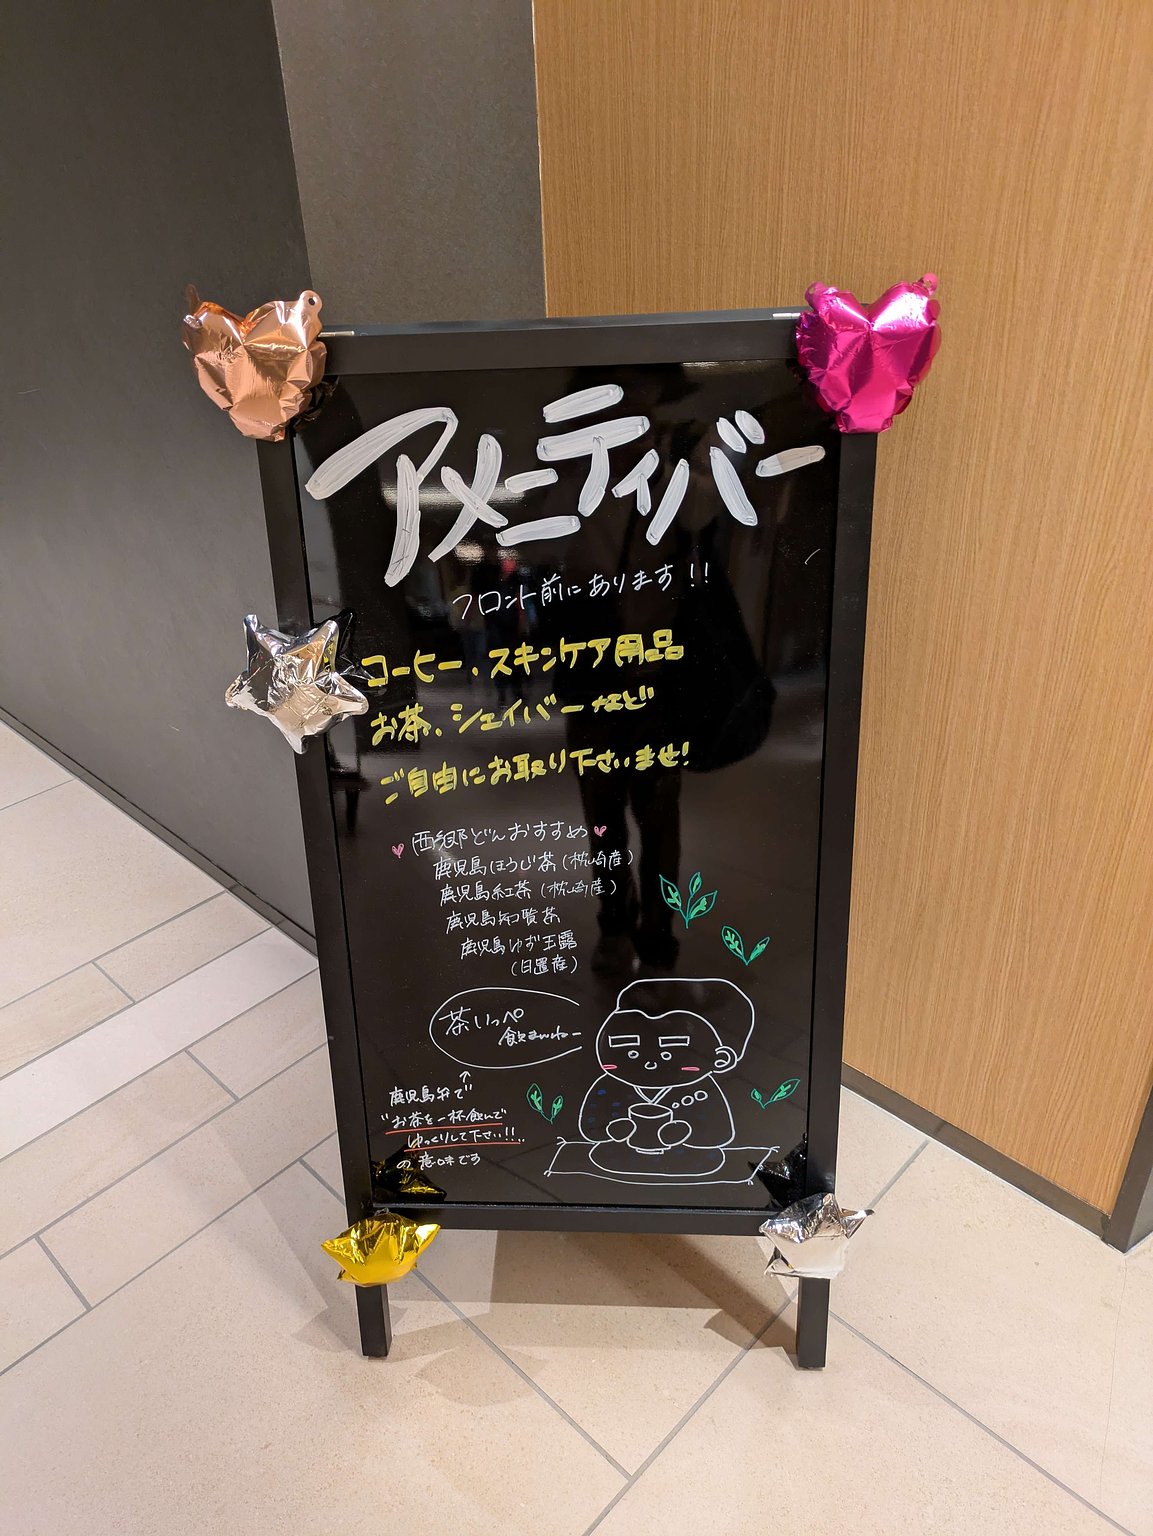 アメニティバー
フロント前にあります!!
コーヒー・スキンケア用品
お茶、シェイバーなど
ご自由にお取り下さいませ!
西郷どんおすすめ
鹿児島ほうじ茶(枕崎産)
鹿児島紅茶(枕崎産)
鹿児島知覧茶
鹿児島ゆず玉露
(日置産)
茶いっぺ
飲まんねー
鹿児島弁で
"お茶を一杯飲んで
ゆっくりして下さい!!"
の意味です